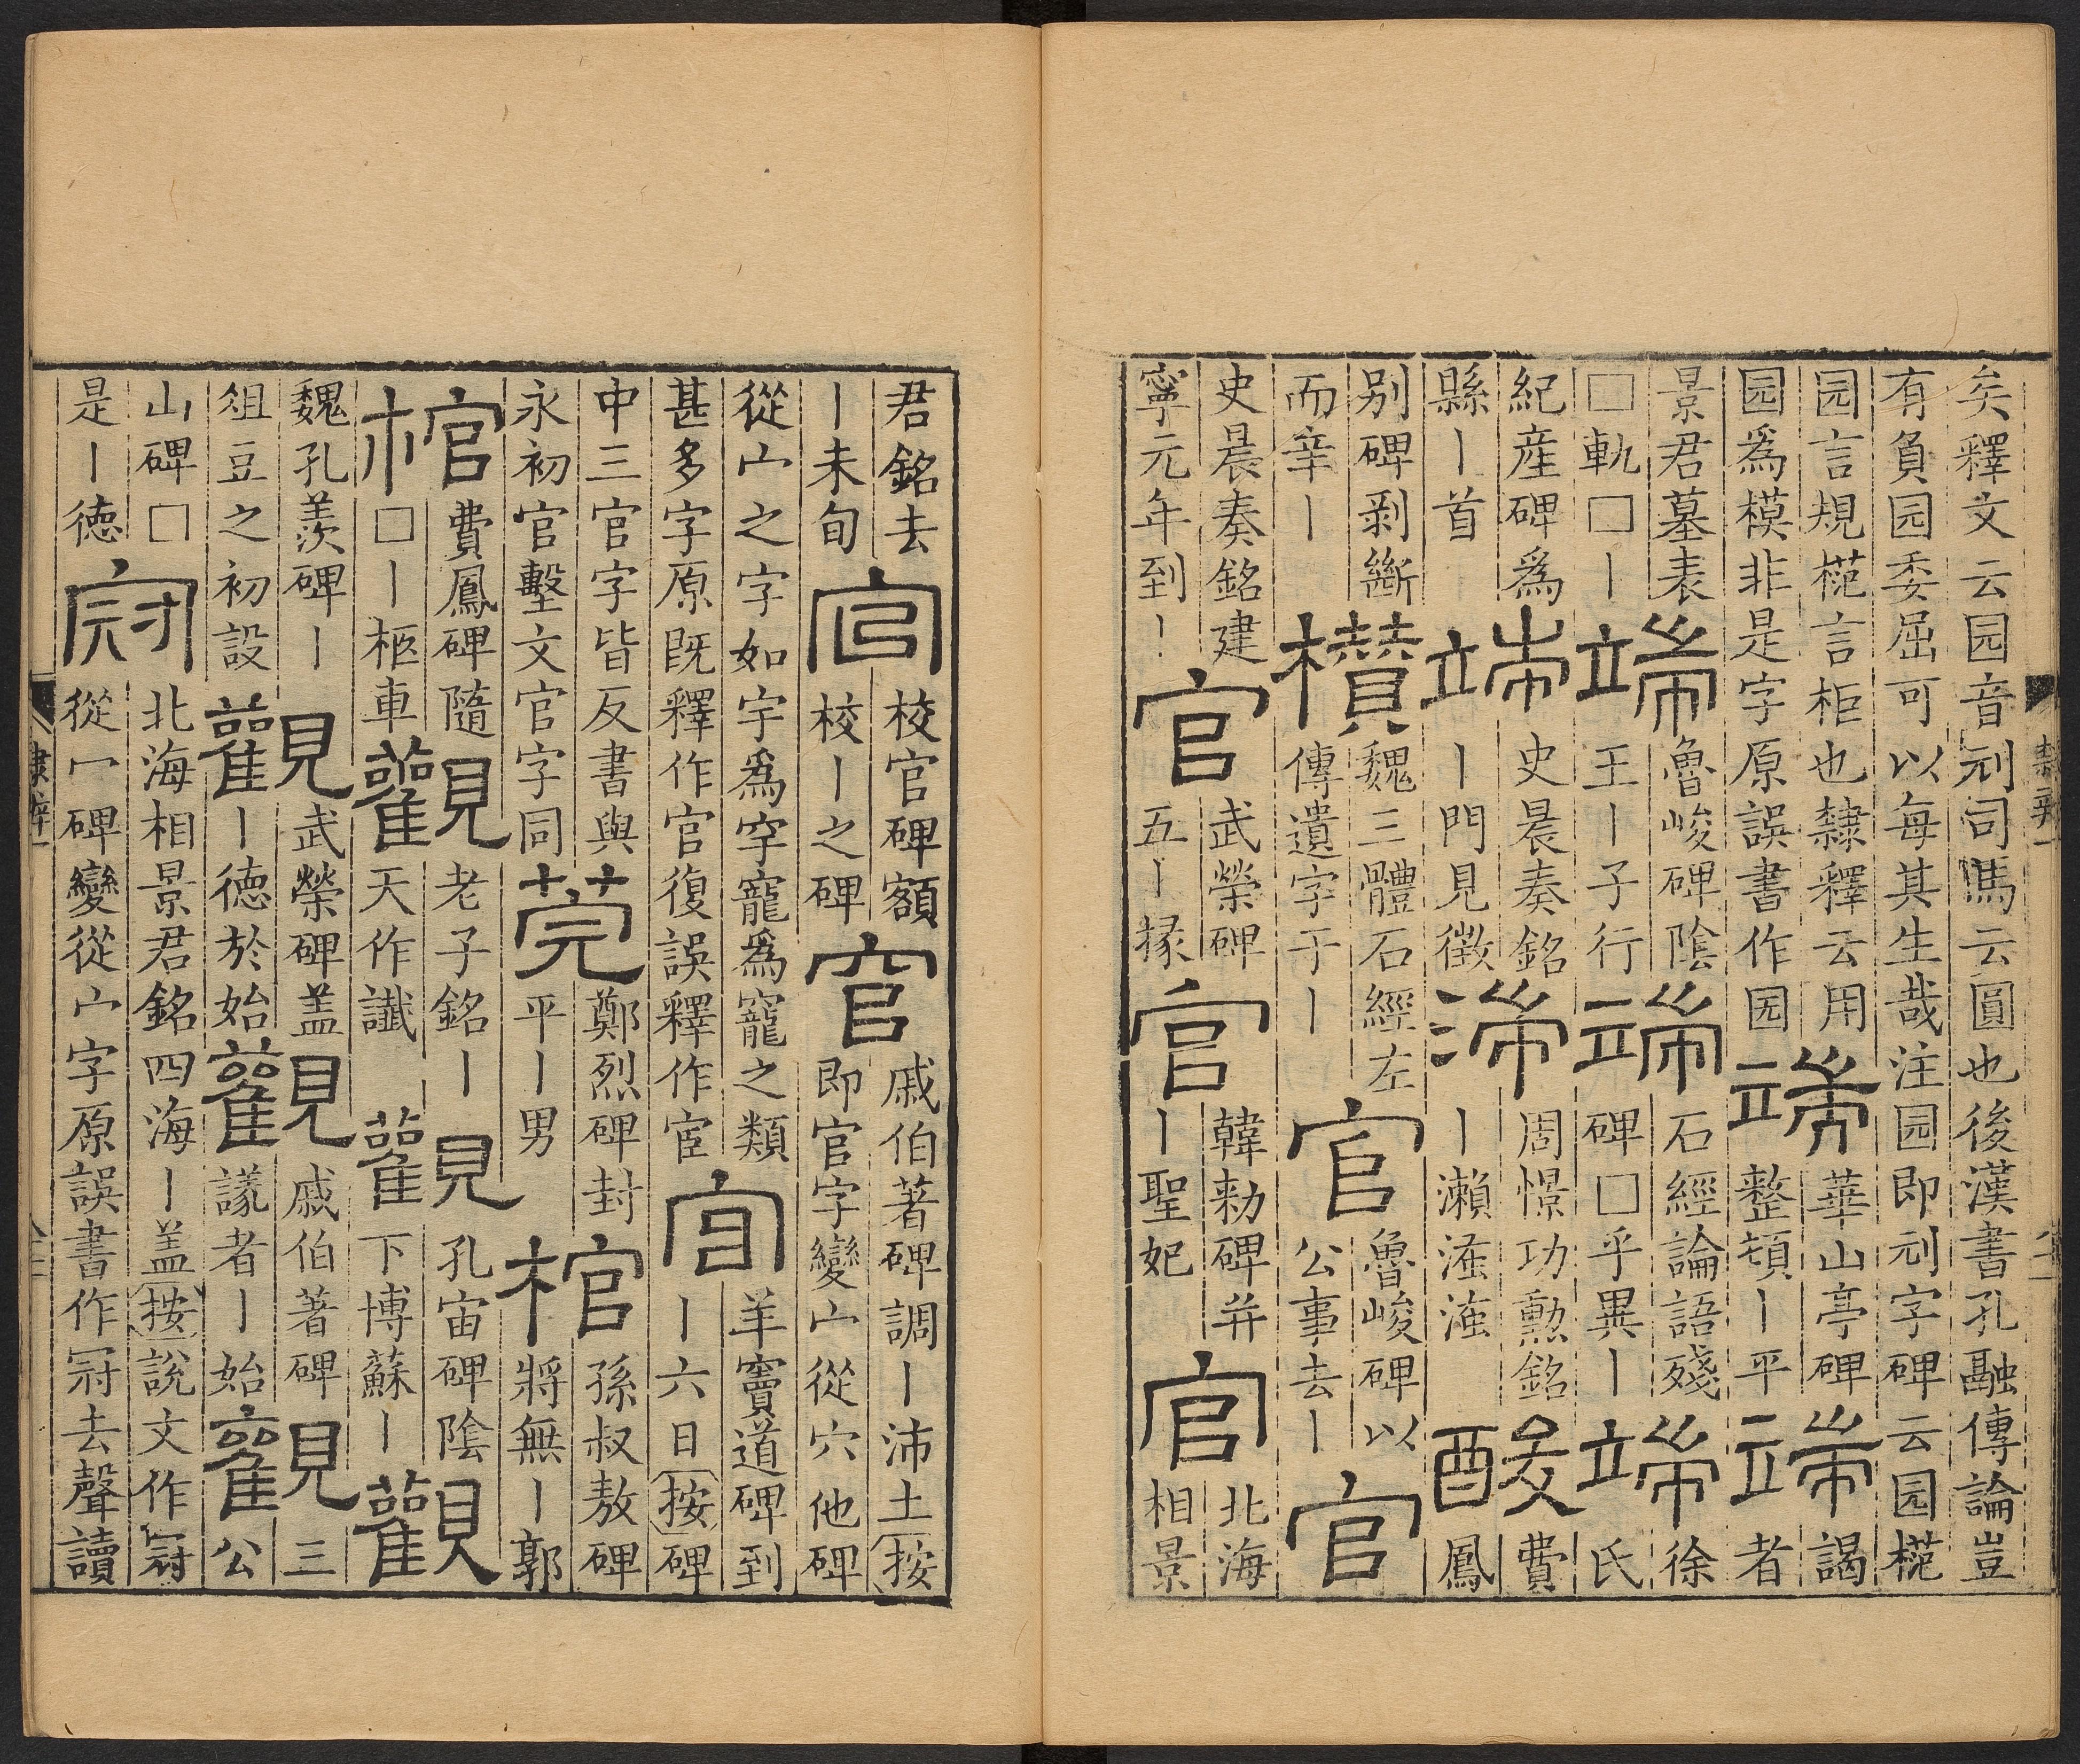 矣釋文云园音刓司馬云圓也後漢書孔融傳論豈
有負园委屈可以每其生哉注园即刓字碑云园㨯
园言規㨯言柜也隸釋云用园爲模非是字原誤書作园端華山亭碑整頓丨平端謁者
景君墓表□軌□丨端魯峻碑陰王丨子行端石經論語殘碑□乎異丨端徐氏
紀産碑爲縣丨首端史晨奏銘丨門見徵湍周憬功勲銘丨瀨滻滻酸費鳳
别碑剥斷而辛丨欑魏三體石經左傳遺字于丨官魯峻碑以公事去丨官
史晨奏銘建寧元年到丨官武榮碑五丨掾官韓勑碑并丨聖妃官北海相景
隸辨一
君銘去丨未旬官校官碑額校丨之碑官戚伯著碑調丨沛土按即官字變宀從穴他碑
從宀之字如宇爲穻寵爲竉之類甚多字原既釋作官復誤釋作宧官羊竇道碑到丨六日按碑
中三官字皆反書與永初官墼文官字同莞鄭烈碑封平丨男棺孫叔敖碑將無丨郭
棺費鳳碑隨□丨柩車觀老子銘丨天作讖觀孔宙碑陰下博蘇丨觀
魏孔羨碑丨俎豆之初設觀武榮碑盖丨德於始觀戚伯著碑議者丨始觀三公
山碑□是丨德冠北海相景君銘四海丨盖按說文作冠從冖碑變從宀字原誤書作冠去聲讀
隸辨一